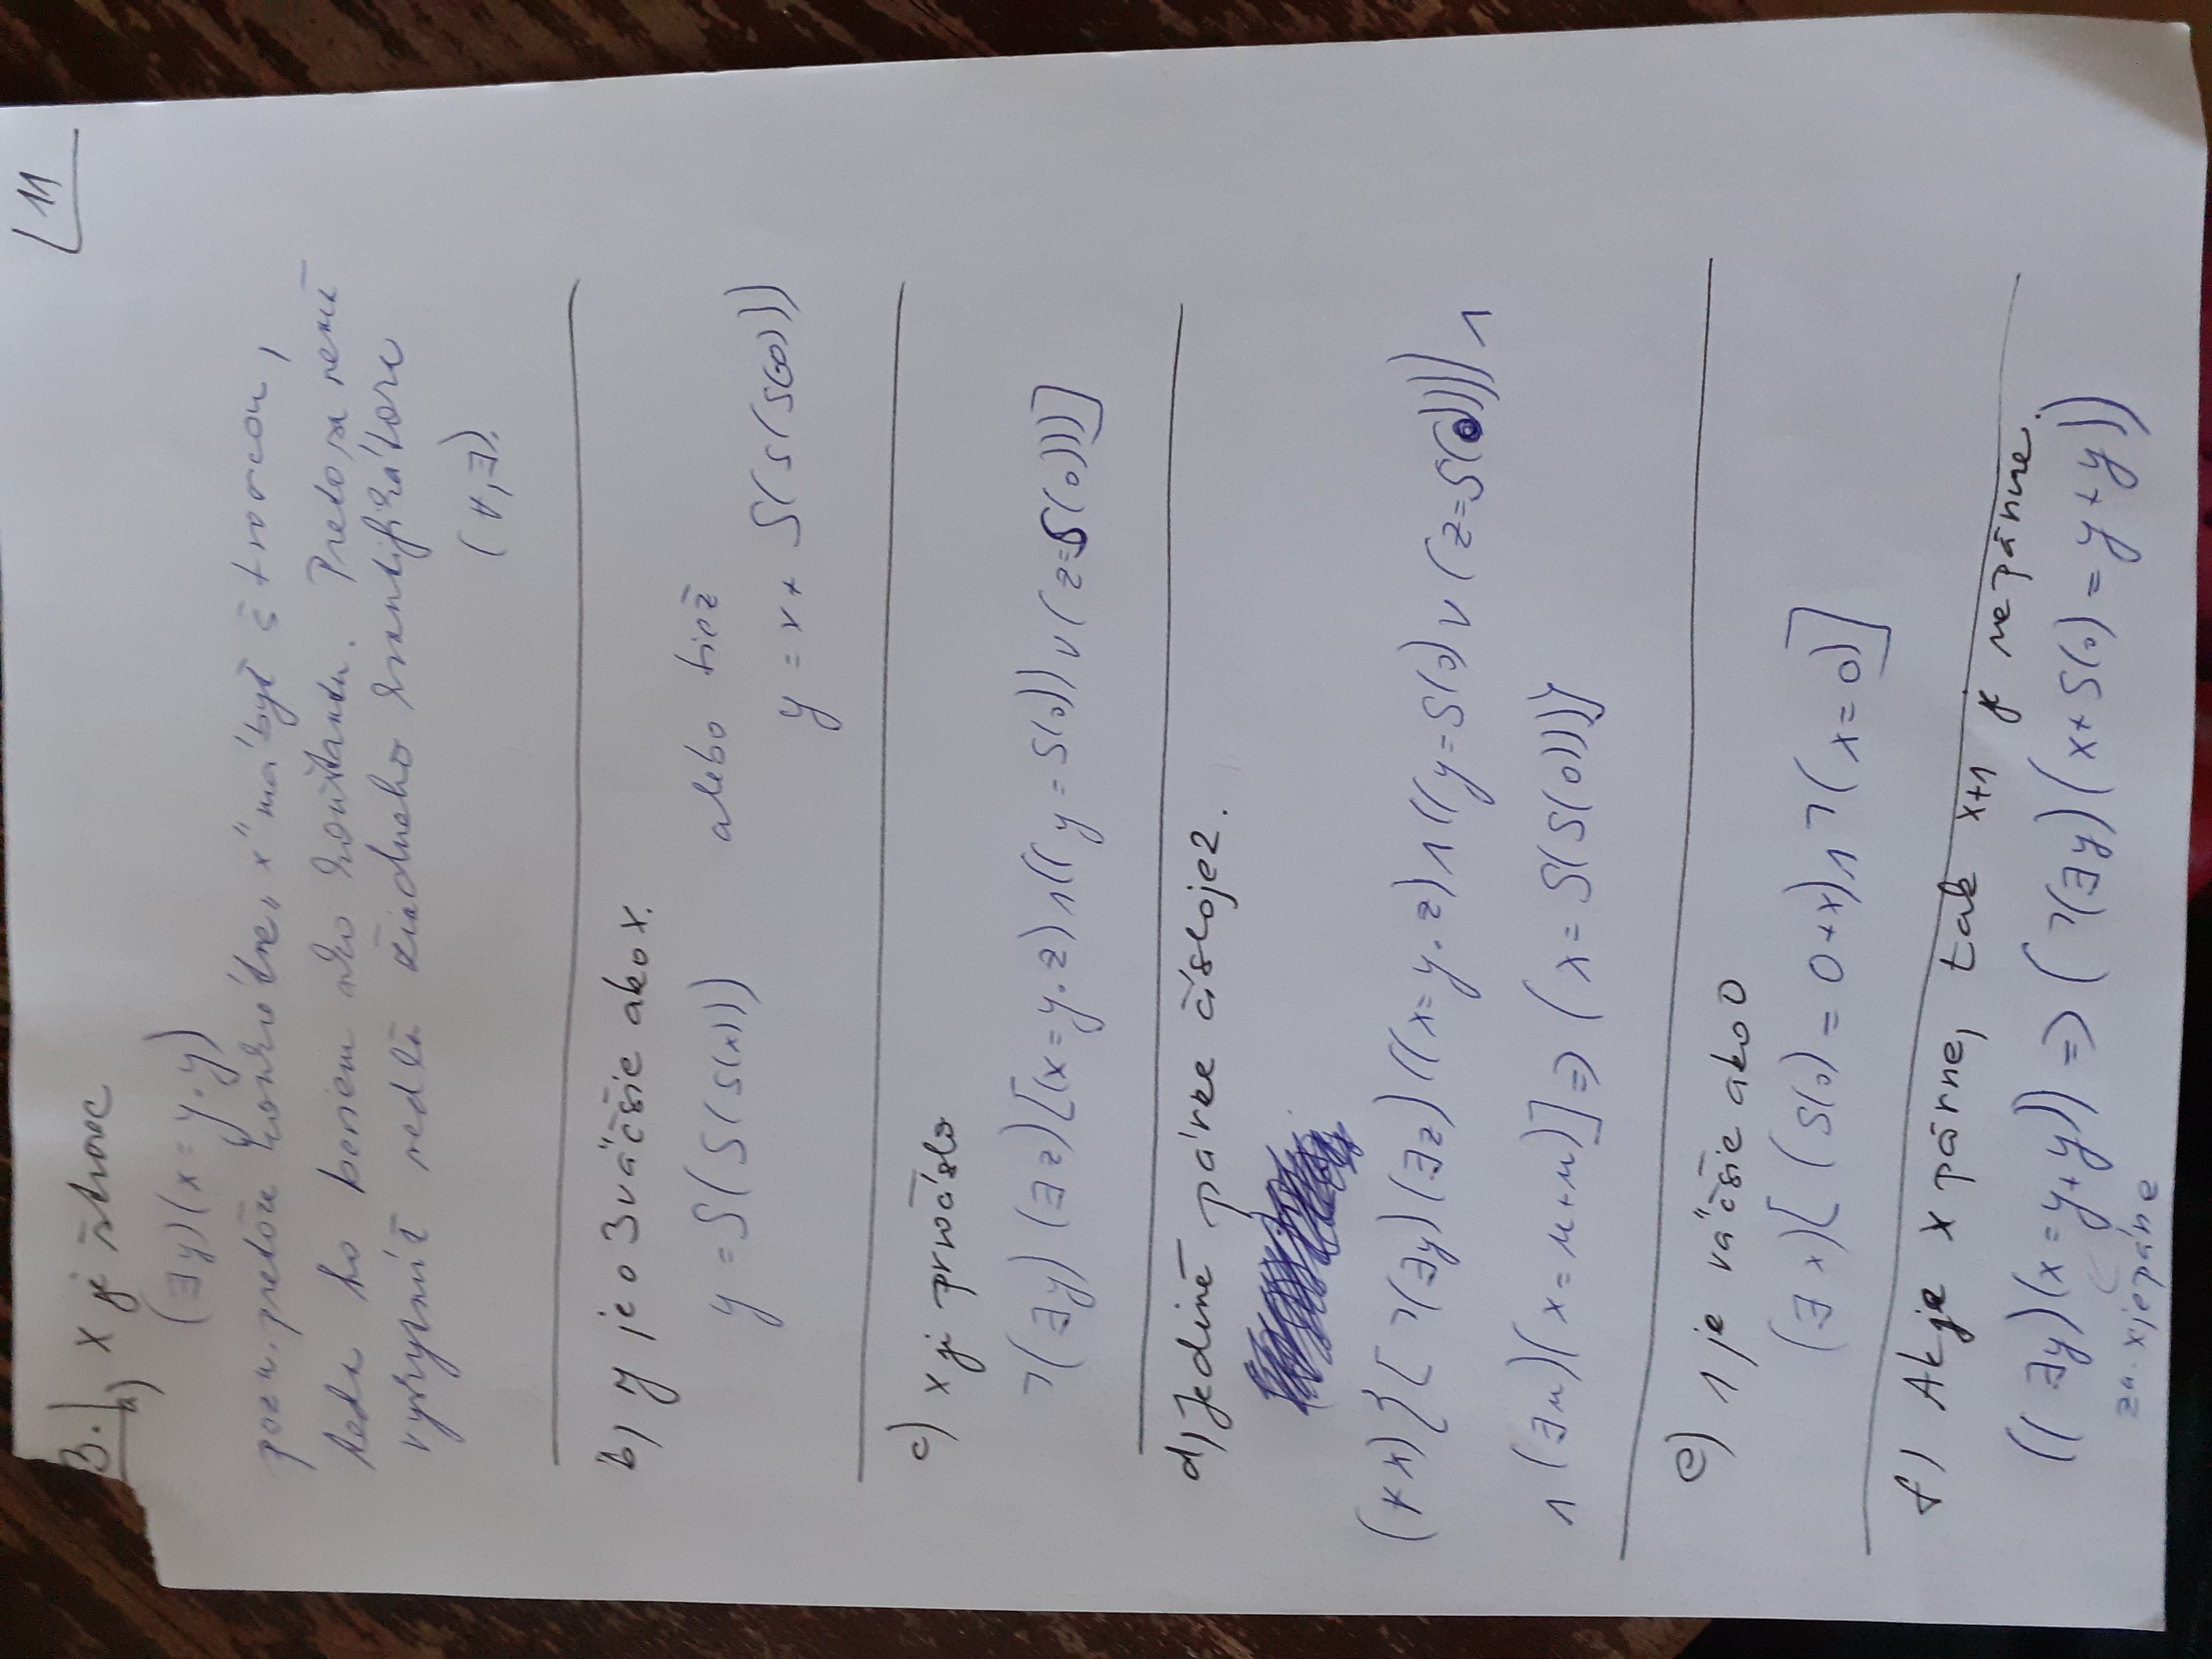 11
3.) a) x je štvorec
(∃y)(x = y·y)
pozn. pretože konkrétne „x" má byť štvorcom,
teda ho beriem ako konštantu. Preto sa naň
vyskytnúť nedá žiadneho kvantifikátora
(∀,∃).
b) y je o 3 väčšie ako x.
y = S(S(S(x))) alebo tiež
y = x + S(S(S(0)))
c) x je prvočíslo
¬(∃y)(∃z)[(x = y·z) ∧ ((y = S(0)) ∨ (z = S(0)))]
d) Jediné párne čísloje 2.
(∀x){[¬(∃y)(∃z)((x = y·z) ∧ ((y = S(0)) ∨ (z = S(0)))) ∧
∧ (∃u)(x = u+u)] ⇒ (x = S(S(0)))}
e) 1 je väčšie ako 0
(∃x)[(S(0) = 0+x) ∧ ¬(x = 0)]
f) Ak je x párne, tak x+1 je nepárne.
((∃y)(x = y+y)) ⇒ (¬(∃y)(x + S(0) = y+y))
zn. x je párne